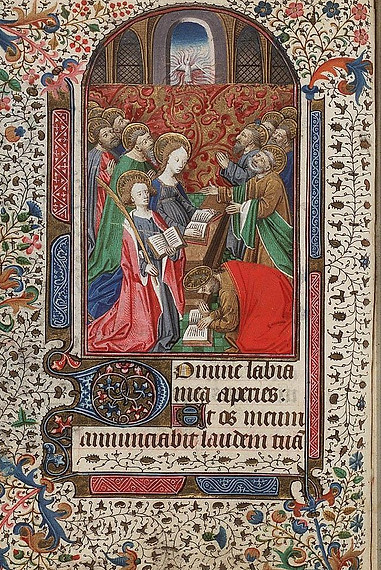 Domine labia
mea aperies:
Et os meum
annunciabit laudem tuā